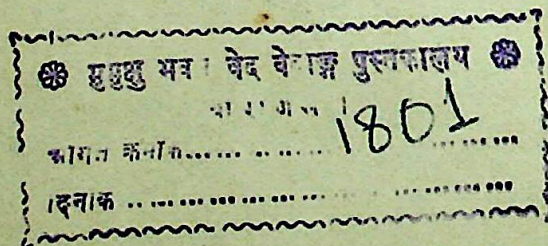 मुमुक्षु भवन वेद वेदाङ्ग पुस्तकालय
वाराणसी
आगत क्रमांक............ 1801 ............
दिनांक ........................